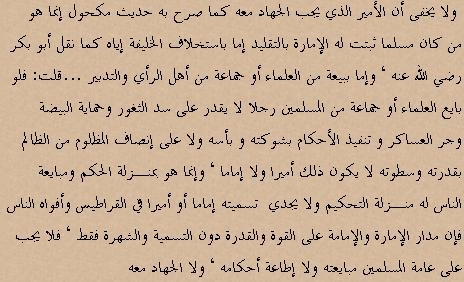 ولا يخفى أن الأمير الذي يجب الجهاد معه كما صرح به حديث مكحول إنما هو
من كان مسلما ثبتت له الإمارة بالتقليد إما باستخلاف الخليفة إياه كما نقل أبو بكر
رضي الله عنه ‘ وإما ببيعة من العلماء أو جماعة من أهل الرأي والتدبير ...قلت: فلو
بايع العلماء أو جماعة من المسلمين رجلا لا يقدر على سد الثغور وحماية البيضة
وجر العساكر و تنفيذ الأحكام بشوكته و بأسه ولا على إنصاف المظلوم من الظالم
بقدرته وسطوته لا يكون ذلك أميرا ولا إماما ‘ وإنما هو بمنـزلة الحكم ومبايعة
الناس له منـزلة التحكيم ولا يجدي تسميته إماما أو أميرا في القراطيس وأفواه الناس
فإن مدار الإمارة والإمامة على القوة والقدرة دون التسمية والشهرة فقط ‘ فلا يجب
على عامة المسلمين مبايعته ولا إطاعة أحكامه ‘ ولا الجهاد معه